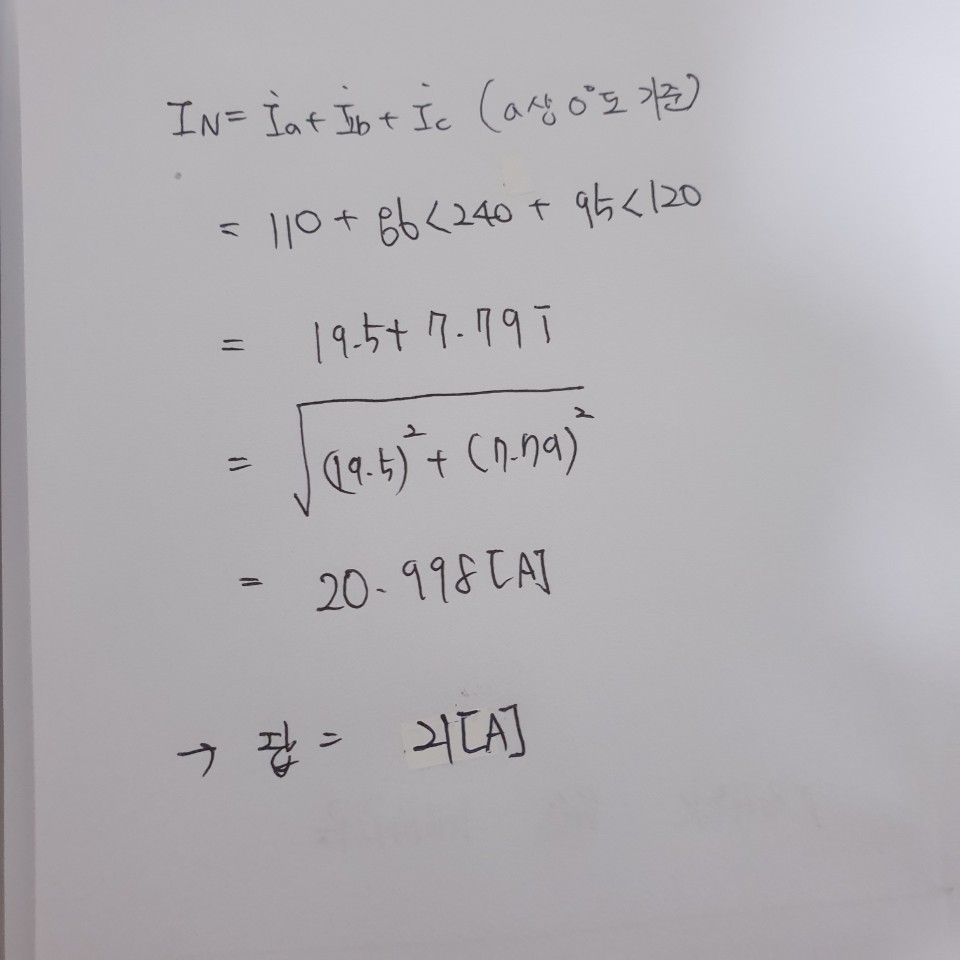 IN = İa + İb + İc (a상 0°도 기준)
= 110 + 86<240 + 95<120
= 19.5 + 7.79i
= √(19.5)² + (7.79)²
= 20.998[A]
→ 답 = 21[A]